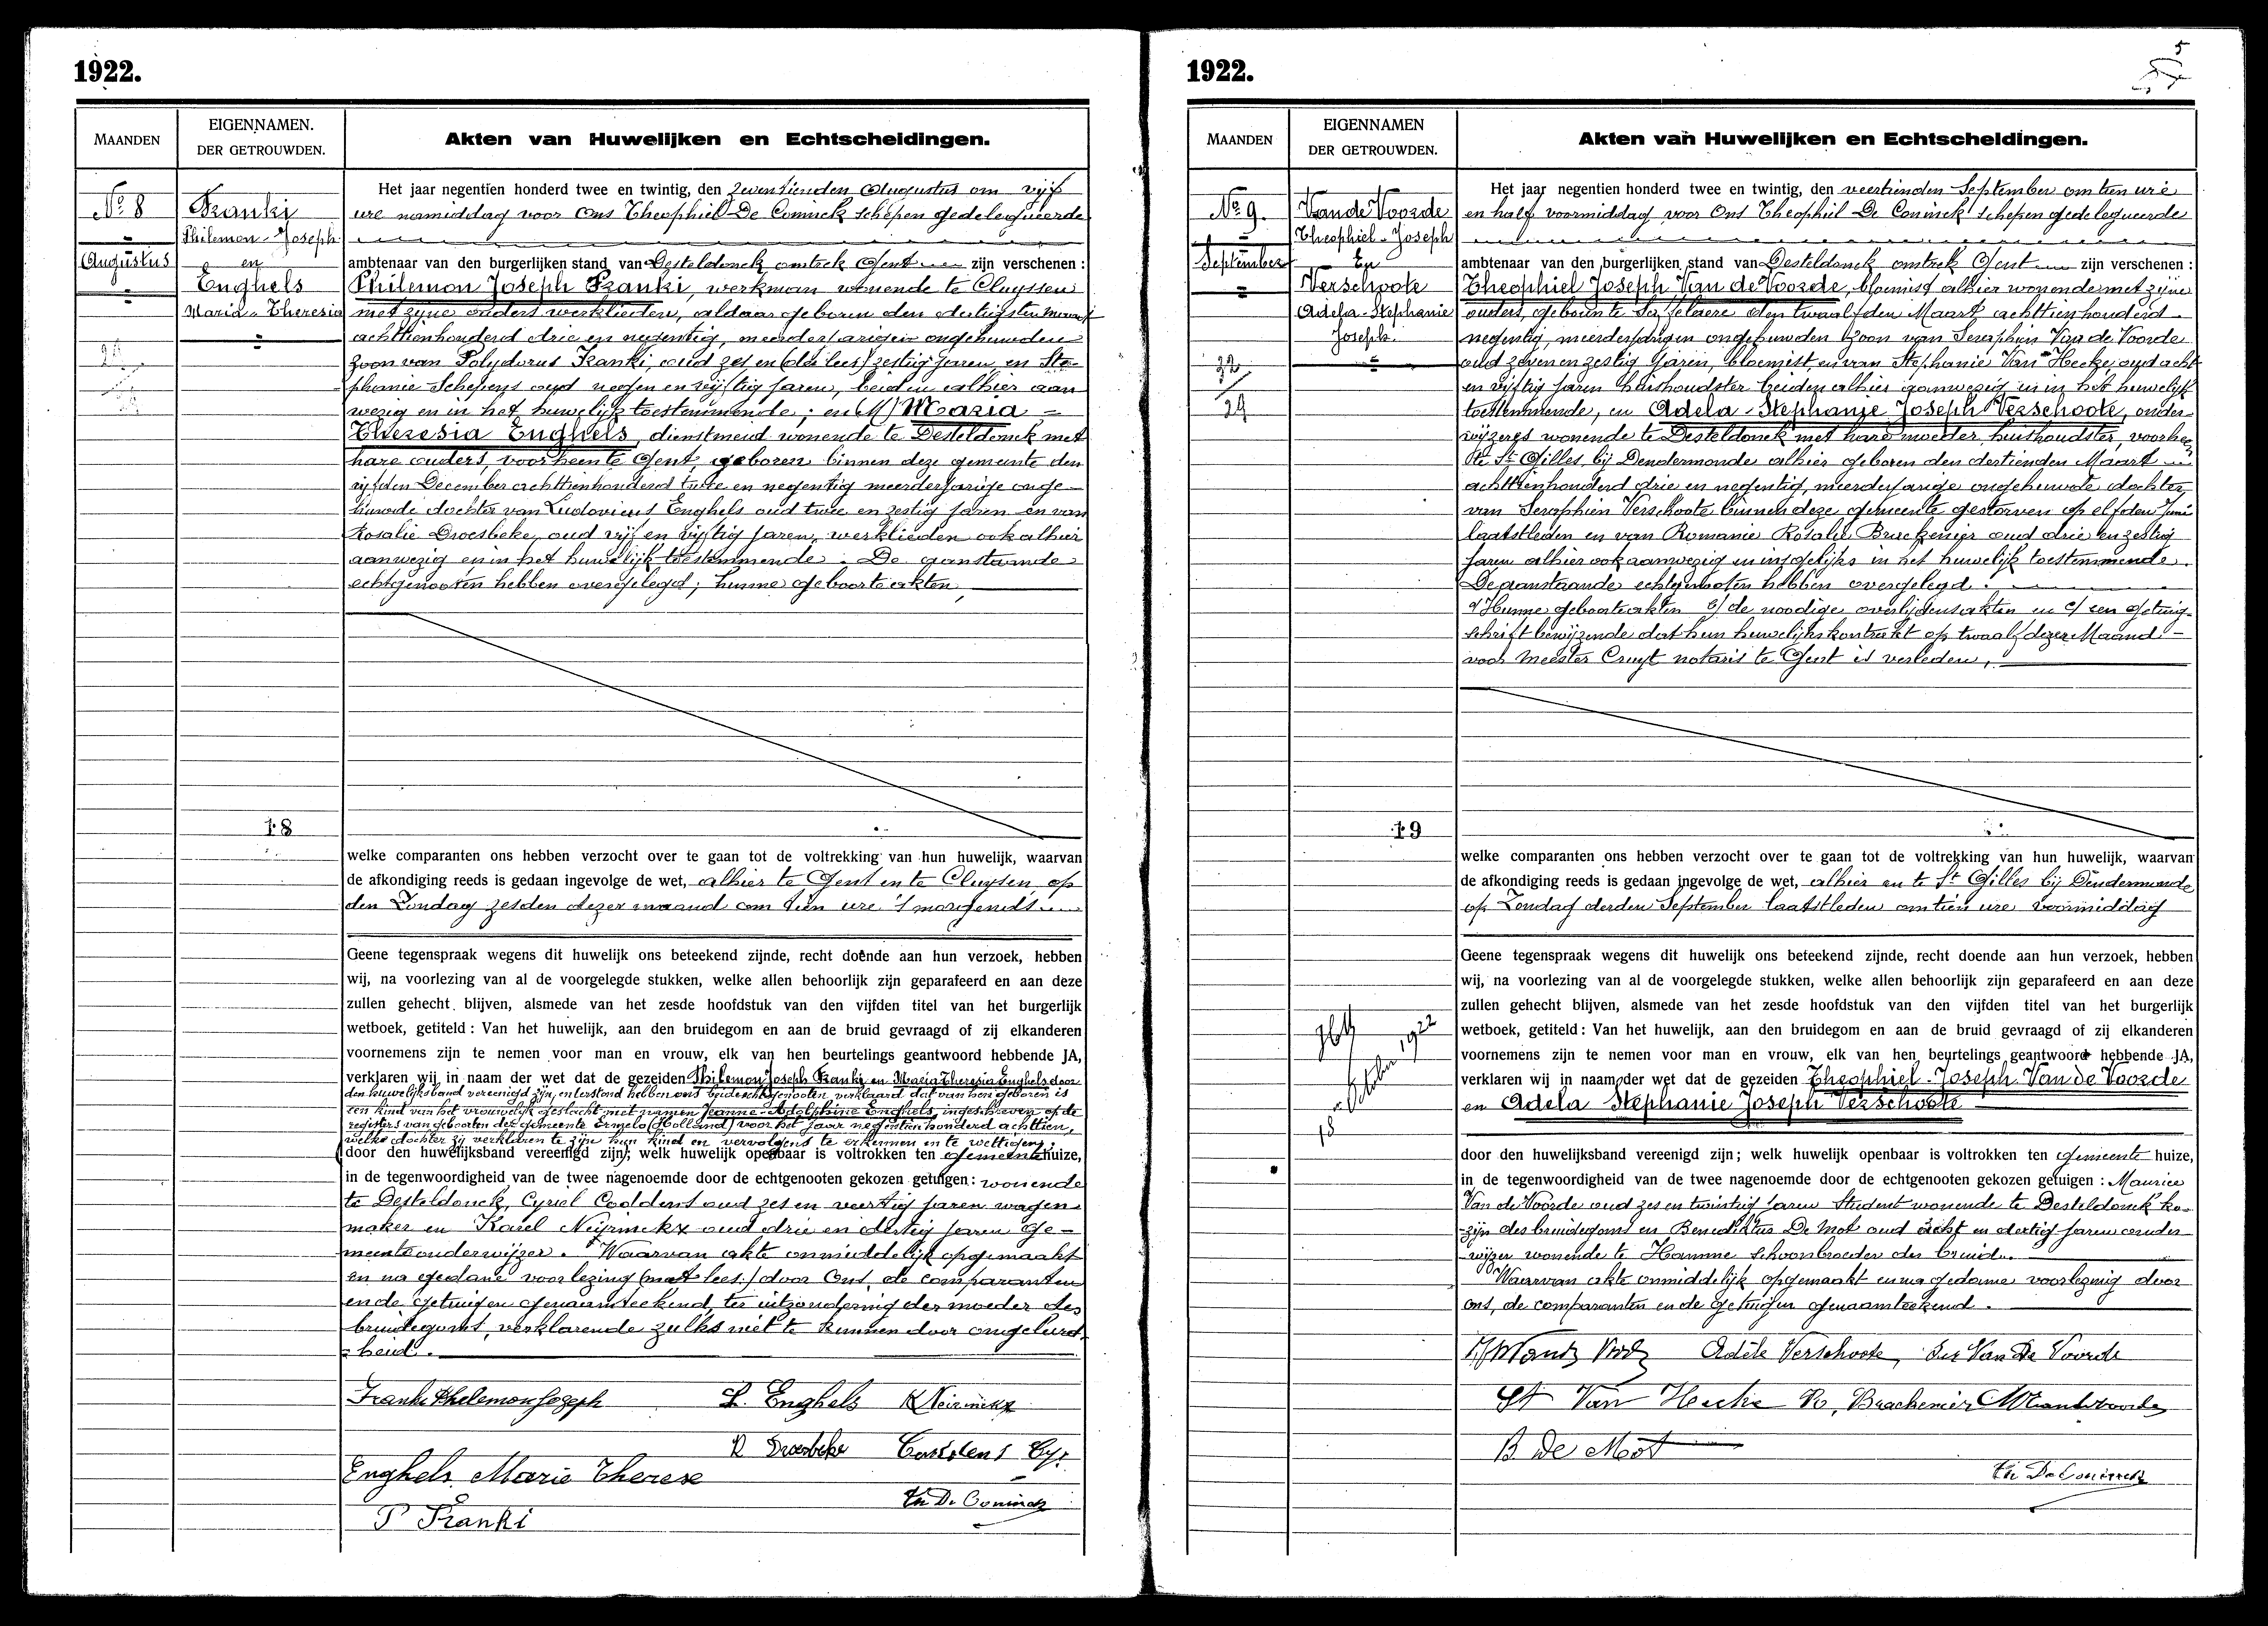 1922.
MAANDEN
EIGENNAMEN.
DER GETROUWDEN.
Akten van Huwelijken en Echtscheidingen.
No 8
Augustus
Franki
Philemon-Joseph
en
Enghels
Maria-Theresia
18
Het jaar negentien honderd twee en twintig, den zeventienden Augustus om vijf
ure namiddag voor Ons Theophiel De Coninck schepen gedelegueerde
ambtenaar van den burgerlijken stand van Desteldonck omtrek Gent zijn verschenen :
Philemon Joseph Franki, werkman wonende te Cluysen
met zijne ouders werklieden, aldaar geboren den dertigsten
achttienhonderd drie en negentig, meerderjarigen ongehuwden
zoon van Polydorus Franki, oud zes en (da lees) zestig jaren, en Ste-
phanie Schepens oud negen en vijftig jaren, beiden alhier aan
wezig en in het huwelijk toestemmende ; en Maria
Theresia Enghels, dienstmeid wonende te Desteldonck met
hare ouders, voorheen te Gent, geboren binnen deze gemeente den
vijfden December achttienhonderd twee en negentig meerderjarige onge-
huwde dochter van Ludovicus Enghels oud twee en zestig jaren en van
Rosalie Droesbeke, oud vijf en vijftig jaren, werklieden ook alhier
aanwezig en in het huwelijk toestemmende. De aanstaande
echtgenooten hebben overgelegd ; hunne geboorteakten,
welke comparanten ons hebben verzocht over te gaan tot de voltrekking van hun huwelijk, waarvan
de afkondiging reeds is gedaan ingevolge de wet, alhier te Gent en te Cluysen op
den Zondag zesden dezer maand om tien ure 's morgends
Geene tegenspraak wegens dit huwelijk ons beteekend zijnde, recht doende aan hun verzoek, hebben
wij, na voorlezing van al de voorgelegde stukken, welke allen behoorlijk zijn geparafeerd en aan deze
zullen gehecht blijven, alsmede van het zesde hoofdstuk van den vijfden titel van het burgerlijk
wetboek, getiteld : Van het huwelijk, aan den bruidegom en aan de bruid gevraagd of zij elkanderen
voornemens zijn te nemen voor man en vrouw, elk van hen beurtelings geantwoord hebbende JA,
verklaren wij in naam der wet dat de gezeiden Philemon Joseph Franki en Maria Theresia Enghels door
den huwelijksband vereenigd zijn, en terstond hebben ons beide echtgenooten verklaard dat van hen geboren is
een kind van het vrouwelijk geslacht met namen Jeanne-Adolphine Enghels, ingeschreven op de
registers van geboorten der gemeente Ermelo (Holland) voor het jaar negentienhonderd achttien,
welke dochter zij verklaren te zijn hun kind en vervolgens te erkennen en te wettigen ;
(door den huwelijksband vereenigd zijn); welk huwelijk openbaar is voltrokken ten gemeentehuize,
in de tegenwoordigheid van de twee nagenoemde door de echtgenooten gekozen getuigen : wonende
te Desteldonck, Cyriel Coddens oud zes en veertig jaren wagen-
maker en Karel Neyrinckx oud drie en dertig jaren ge-
meenteonderwijzer. Waarvan akte onmiddelijk opgemaakt
en na gedane voorlezing (met lees) door Ons, de comparanten
en de getuigen genaamteekend, ter uitzondering der moeder des
bruidegoms, verklarende zulks niet te kunnen door ongeleerd-
heid.
Franki Philemon Joseph L. Enghels K Neirinckx
R Droesbeke Cy.
Enghels Marie Therese
Th De Coninck
P Franki
1922.
5
MAANDEN
EIGENNAMEN
DER GETROUWDEN.
Akten van Huwelijken en Echtscheidingen.
No 9.
September
22
29
Van de Voorde
Theophiel-Joseph
En
Verschoote
Adela-Stephanie
Joseph.
19
18 October 1922
Het jaar negentien honderd twee en twintig, den veertienden September om tien ure
en half voormiddag voor Ons Theophiel De Coninck schepen gedelegueerde
ambtenaar van den burgerlijken stand van Desteldonck omtrek Gent zijn verschenen :
Theophiel Joseph Van de Voorde, bloemist alhier wonende met zijne
ouders, geboren te den twaalfden Maart achttienhonderd
negentig, meerderjarigen ongehuwden zoon van Seraphin Van de Voorde
oud zeven en zestig jaren, bloemist, en van Stephanie Van Hecke, oud acht
en vijftig jaren huishoudster beiden alhier aanwezig en in het huwelijk
toestemmende, en Adela-Stephanie Joseph Verschoote, onder-
wijzeres wonende te Desteldonck met hare moeder, huishoudster, voorheen
te St Gilles, bij Dendermonde alhier geboren den dertienden Maart
achttienhonderd drie en negentig, meerderjarige ongehuwde dochter
van Seraphien Verschoote binnen deze gemeente gestorven op elfden Juni
laatstleden en van Romanie Rosalie Braeckenier oud drie en zestig
jaren alhier ook aanwezig en insgelijks in het huwelijk toestemmende.
De aanstaande echtgenooten hebben overgelegd.
a/ Hunne geboorteakten b/ de noodige overlijdensakten en c/ een getuig-
schrift bewijzende dat hun huwelijkskontrakt op twaalf dezer Maand
voor Meester Cruyt notaris te Gent is verleden,
welke comparanten ons hebben verzocht over te gaan tot de voltrekking van hun huwelijk, waarvan
de afkondiging reeds is gedaan ingevolge de wet, alhier en te St Gilles bij Dendermonde
op Zondag derden September laatstleden om tien ure voormiddag
Geene tegenspraak wegens dit huwelijk ons beteekend zijnde, recht doende aan hun verzoek, hebben
wij, na voorlezing van al de voorgelegde stukken, welke allen behoorlijk zijn geparafeerd en aan deze
zullen gehecht blijven, alsmede van het zesde hoofdstuk van den vijfden titel van het burgerlijk
wetboek, getiteld : Van het huwelijk, aan den bruidegom en aan de bruid gevraagd of zij elkanderen
voornemens zijn te nemen voor man en vrouw, elk van hen beurtelings geantwoord hebbende JA,
verklaren wij in naam der wet dat de gezeiden Theophiel-Joseph Van de Voorde
en Adela Stephanie Joseph Verschoote
door den huwelijksband vereenigd zijn; welk huwelijk openbaar is voltrokken ten gemeente huize,
in de tegenwoordigheid van de twee nagenoemde door de echtgenooten gekozen getuigen : Maurice
Van de Voorde oud zes en twintig jaren Student wonende te Desteldonck ko-
zijn des bruidegoms en Benediktus De Mot oud acht en dertig jaren onder-
wijzer wonende te Hamme schoonbroeder der bruid.
Waarvan akte onmiddelijk opgemaakt en na gedane voorlezing door
ons, de comparanten en de getuigen genaamteekend.
Adèle Verschoote, Ser Van De Voorde
St Van Hecke Ro, Braeckenier M Vandevoorde
B De Moot
Th De Coninck